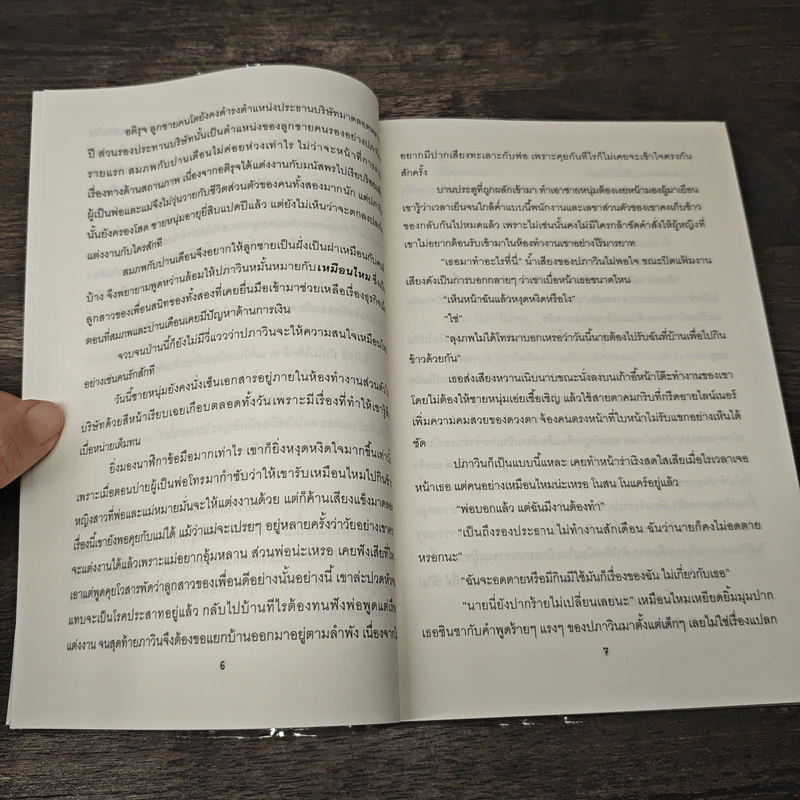 อติรุจ ลูกชายคนโตยังคงดำรงตำแหน่งประธานบริษัทมาตลอด
ปี ส่วนรองประทานบริษัทนั้นเป็นตำแหน่งของลูกชายคนรองอย่าง
รายแรก สมภพกับปานเดือนไม่ค่อยห่วงเท่าไร ไม่ว่าจะหน้าที่การ
เรื่องทางด้านสถานภาพ เนื่องจากอติรุจได้แต่งงานกับมนัสพรไปเรียบร้อย
ผู้เป็นพ่อและแม่จึงไม่วุ่นวายกับชีวิตส่วนตัวของคนทั้งสองมากนัก แต่
นั้นยังครองโสด ชายหนุ่มอายุยี่สิบแปดปีแล้ว แต่ยังไม่เห็นว่าจะตกลง
แต่งงานกับใครสักที
สมภพกับปานเดือนจึงอยากให้ลูกชายเป็นฝั่งเป็นฝาเหมือนกับคน
บ้าง จึงพยายามพูดหว่านล้อมให้ปภาวินหมั้นหมายกับเหมือนไหม ซึ่ง
ลูกสาวของเพื่อนสนิทของทั้งสองที่เคยยื่นมือเข้ามาช่วยเหลือเรื่องธุรกิจ
ตอนที่สมภพและปานเดือนเคยมีปัญหาด้านการเงิน
จวบจนป่านนี้ก็ยังไม่มีวี่แววว่าปภาวินจะให้ความสนใจเหมือนไหม
อย่างเช่นคนรักสักที
วันนี้ชายหนุ่มยังคงนั่งเซ็นเอกสารอยู่ภายในห้องทำงานส่วนตัว
บริษัทด้วยสีหน้าเรียบเฉยเกือบตลอดทั้งวัน เพราะมีเรื่องที่ทำให้เขารู้สึก
เบื่อหน่ายเต็มทน
ยิ่งมองนาฬิกาข้อมือมากเท่าไร เขาก็ยิ่งหงุดหงิดใจมากขึ้นเท่านั้น
เพราะเมื่อตอนบ่ายผู้เป็นพ่อโทรมากำชับว่าให้เขารับเหมือนไหมไปกินข้าว
หญิงสาวที่พ่อและแม่หมายมั่นจะให้แต่งงานด้วย แต่ก็ค้านเสียงแข็งมาตลอด
เรื่องนี้เขายังพอคุยกับแม่ได้ แม้ว่าแม่จะเปรยๆ อยู่หลายครั้งว่าวัยอย่างเขาควร
จะแต่งงานได้แล้วเพราะแม่อยากอุ้มหลาน ส่วนพ่อน่ะเหรอ เคยฟังเสียที่ไหน
เอาแต่พูดคุยโวสารพัดว่าลูกสาวของเพื่อนดีอย่างนั้นอย่างนี้ เขาล่ะปวดหัวจน
แทบจะเป็นโรคประสาทอยู่แล้ว กลับไปบ้านทีไรต้องทนฟังพ่อพูดแต่เรื่อง
แต่งงาน จนสุดท้ายภาวินจึงต้องขอแยกบ้านออกมาอยู่ตามลำพัง เนื่องจากไม่
6
อยากมีปากเสียงทะเลาะกับพ่อ เพราะคุยกันทีไรก็ไม่เคยจะเข้าใจตรงกัน
สักครั้ง
บานประตูที่ถูกผลักเข้ามา ทำเอาชายหนุ่มต้องเงยหน้ามองผู้มาเยือน
เขารู้ว่าเวลาเย็นจนใกล้ค่ำแบบนี้พนักงานและเลขาส่วนตัวของเขาคงเก็บข้าว
ของกลับกันไปหมดแล้ว เพราะไม่เช่นนั้นคงไม่มีใครกล้าขัดคำสั่งให้ผู้หญิงที่
เขาไม่อยากต้อนรับเข้ามาในห้องทำงานเขาอย่างไร้มารยาท
“เธอมาทำอะไรที่นี่” น้ำเสียงของปภาวินไม่พอใจ ขณะปิดแฟ้มงาน
เสียงดังเป็นการบอกกลายๆ ว่าเขาเบื่อหน้าเธอขนาดไหน
“เห็นหน้าฉันแล้วหงุดหงิดหรือไง”
“ใช่”
“ลุงภพไม่ได้โทรมาบอกเหรอว่าวันนี้นายต้องไปรับฉันที่บ้านเพื่อไปกิน
ข้าวด้วยกัน”
เธอส่งเสียงหวานเนิบนาบขณะนั่งลงบนเก้าอี้หน้าโต๊ะทำงานของเขา
โดยไม่ต้องให้ชายหนุ่มเอ่ยเชื้อเชิญ แล้วใช้สายตาคมกริบที่กรีดอายไลน์เนอร์
เพิ่มความคมสวยของดวงตา จ้องคนตรงหน้าที่ใบหน้าไม่รับแขกอย่างเห็นได้
ชัด
ปภาวินก็เป็นแบบนี้แหละ เคยทำหน้าร่าเริงสดใสเสียเมื่อไรเวลาเจอ
หน้าเธอ แต่คนอย่างเหมือนไหมน่ะเหรอ โนสน โนแคร์อยู่แล้ว
“พ่อบอกแล้ว แต่ฉันมีงานต้องทำ”
“เป็นถึงรองประธาน ไม่ทำงานสักเดือน ฉันว่านายก็คงไม่อดตาย
หรอกนะ”
“ฉันจะอดตายหรือมีกินมีใช้มันก็เรื่องของฉัน ไม่เกี่ยวกับเธอ”
“นายนี่ยังปากร้ายไม่เปลี่ยนเลยนะ” เหมือนไหมเหยียดยิ้มมุมปาก
เธอชินชากับคำพูดร้ายๆ แรงๆ ของปภาวินมาตั้งแต่เด็กๆ เลยไม่ใช่เรื่องแปลก
7